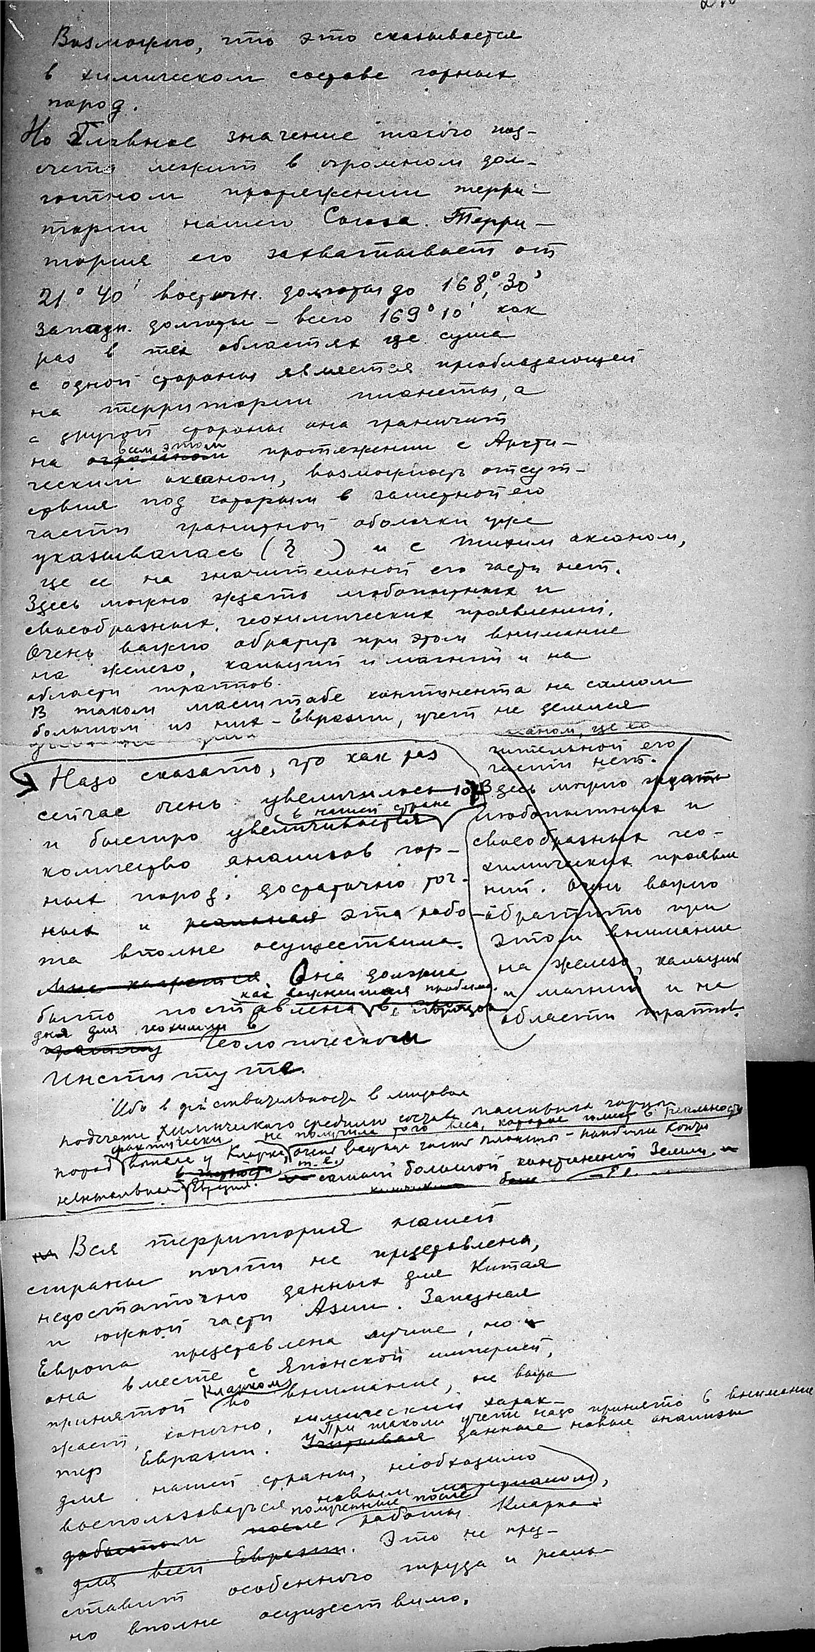 Возможно, что это сказывается
в химическом составе горных
пород.
Но Главное значение такого под-
счета лежит в огромном дол-
готном протяжении терри-
тории нашего Союза. Терри-
тория его захватывает от
21° 40' восточн. долготы до 168° 30'
западн. долготы – всего 169° 10' как
раз в тех областях где суша
с одной стороны является преобладающей
на территории планеты, а
с другой стороны она граничит
на огромном всем этом протяжении с Аркти-
ческим океаном, возможность отсут-
ствия под которым в заметной его
части гранитной оболочки уже
указывалась (§ ) и с Тихим океаном,
где ее на значительной его части нет.
Здесь можно ждать любопытных и
своеобразных геохимических проявлений.
Очень важно обратить при этом внимание
на железо, кальций и магний и на
области траппов.
В таком масштабе континента на самом
большом из них – Евразии, учет не делился
Надо сказать, что как раз
сейчас очень увеличилось
и быстро увеличивается в нашей стране
количество анализов гор-
ных пород, достаточно точ-
ных и эта рабо-
та вполне осуществима.
Мне кажется. Она должна
быть поставлена как важнейшая проблема
дня для геохимии в
Геологическом
Институте.
аном, где ее
чительной его
части нет.
Здесь можно ждать
любопытных и
своеобразных гео-
химических проявле
ний. Очень важно
обратить при
этом внимание
на железо, кальций
и магний и на
области траппов.
Ибо в действительности в мировом
подсчете химического среднего состава массивных горных
пород фактически не получила того веса, которое имеет в реальности
вошла у Кларка очень важная часть планеты – наиболее конти
нентальная Евразия, т.е. самый большой континент Земли,
Вся территория нашей
страны почти не представлена,
недостаточно данных для Китая
и южной части Азии. Западная
Европа представлена лучше, но
она вместе с Японской империей,
принятой Кларком во внимание, не выра
жает, конечно, химический харак-
тер Евразии. При таком учете надо принять в внимание
Учитывая данные новые анализы
для нашей страны, необходимо
воспользоваться новым материалом,
добытым после полученные после работы Кларка
для всей Евразии. Это не пред-
ставит особенного труда и реаль-
но вполне осуществимо.